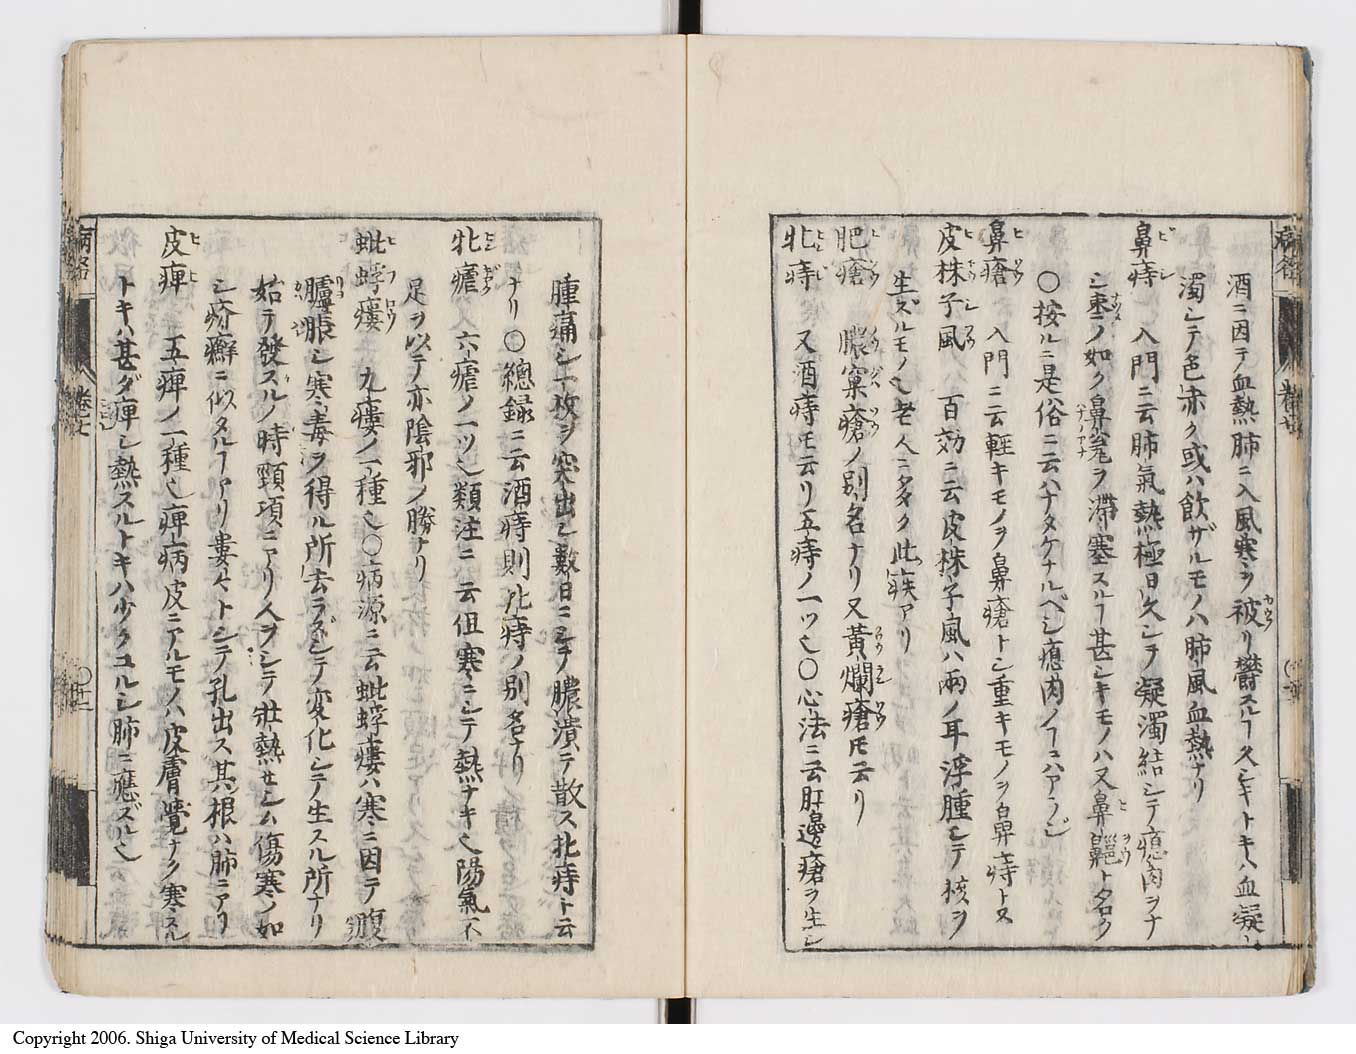 酒ニ因テ血熱肺ニ入風寒ヲ被リ鬱スルヿ久シキトキハ血凝
濁シテ色赤ク或ハ飲ザルモノハ肺風血熱ナリ
鼻痔 入門ニ云肺氣熱極日久シヲ凝濁結シテ瘜肉ヲナ
シ棗ノ如ク鼻竅ヲ滞塞スルヿ甚シキモノハ又鼻齆ト名ク
○按ルニ是俗ニ云ハナタケナルベシ瘜肉ノヿハアラジ
鼻瘡 入門ニ云軽キモノヲ鼻瘡トシ重キモノヲ鼻痔トス
皮株子風 百効ニ云皮株子風ハ兩ノ耳浮腫シテ核ヲ
生ズルモノ也老人ニ多ク此症アリ
肥瘡 膿窠瘡ノ別名ナリ又黄爛瘡トモ云リ
牝痔 又酒痔モ云リ五痔ノ一ツ也○心法ニ云肛邊瘡ヲ生シ
腫痛シ一枚ヲ突出シ數日ニシテ膿潰テ散ス牝痔ト云
ナリ○總録ニ云酒痔則牝痔ノ別名ナリ
牝瘧 六瘧ノ一ツ也類注ニ云但寒ニシテ熱ナキ也陽氣不
足ヲ以テ亦陰邪ノ勝ナリ
蚍蜉瘻 九瘻ノ一種也○病源ニ云蚍蜉瘻ハ寒ニ因テ腹
臚脹シ寒毒ヲ得ル所去ラズシテ変化シテ生スル所ナリ
始テ發スルノ時頸項ニアリ人ヲシテ壮熱セシム傷寒ノ如
シ疥癬ニ似タルヿアリ婁々トシテ孔出ス其根ハ肺ニアリ
皮痺 五痺ノ一種也痺病皮ニアルモノハ皮膚覺ナク寒スル
トキハ甚ダ痺シ熱スルトキハ少クユルシ肺ニ應ズル也
Copyright 2006. Shiga University of Medical Science Library